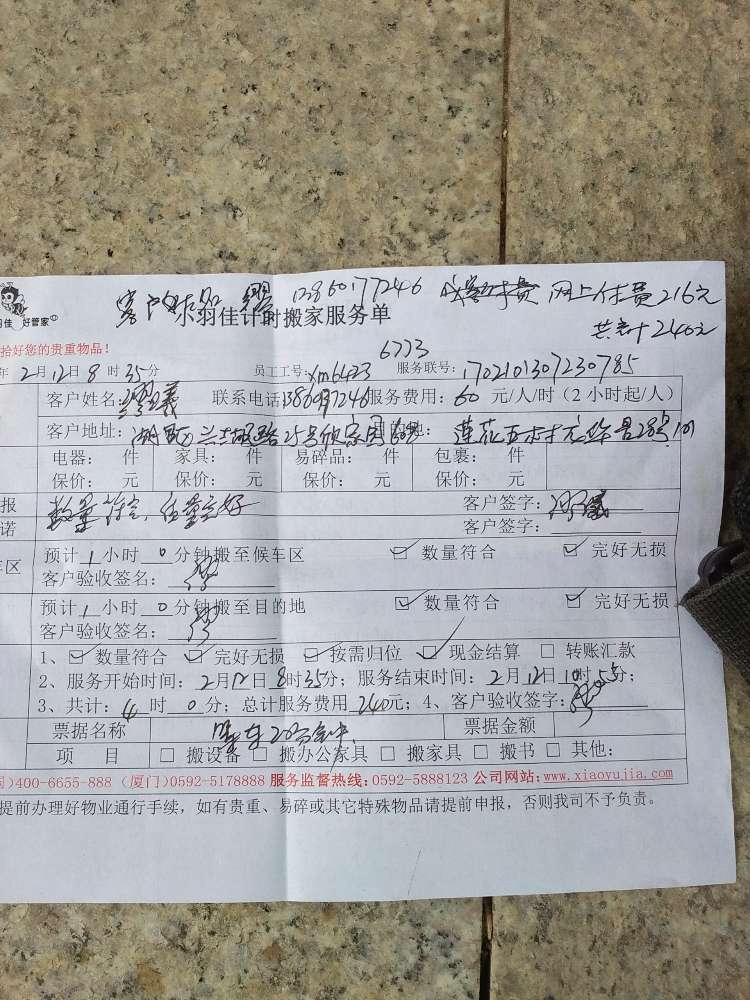 客户 13860177246 网上付费216元
小羽佳计时搬家服务单
羽佳 好管家
共计240元
拾好您的贵重物品!
6773
年2月12日8时35分 员工工号:xm6423 服务联号:170210130723​0785
客户姓名: 联系电话 服务费用:60元/人/时(2小时起/人)
客户地址: 莲花五村
电器: 件 家具: 件 易碎品: 件 包裹: 件
保价: 元 保价: 元 保价: 元 保价: 元
报 数量 质量完好 客户签字:
诺 客户签字:
车区 预计1小时0分钟搬至候车区 数量符合 完好无损
客户验收签名:
预计1小时0分钟搬至目的地 数量符合 完好无损
客户验收签名:
1、数量符合 完好无损 按需归位 现金结算 转账汇款
2、服务开始时间:2月12日8时35分;服务结束时间:2月12日10时55分;
3、共计:4时0分;总计服务费用240元;4、客户签字:
票据名称 票据金额
项 目 搬设备 搬办公家具 搬家具 搬书 其他:
)400-6655-888(厦门)0592-5178888 服务监督热线:0592-5888123 公司网站:www.xiaoyujia.com
提前办理好物业通行手续,如有贵重、易碎或其它特殊物品请提前申报,否则我司不予负责。